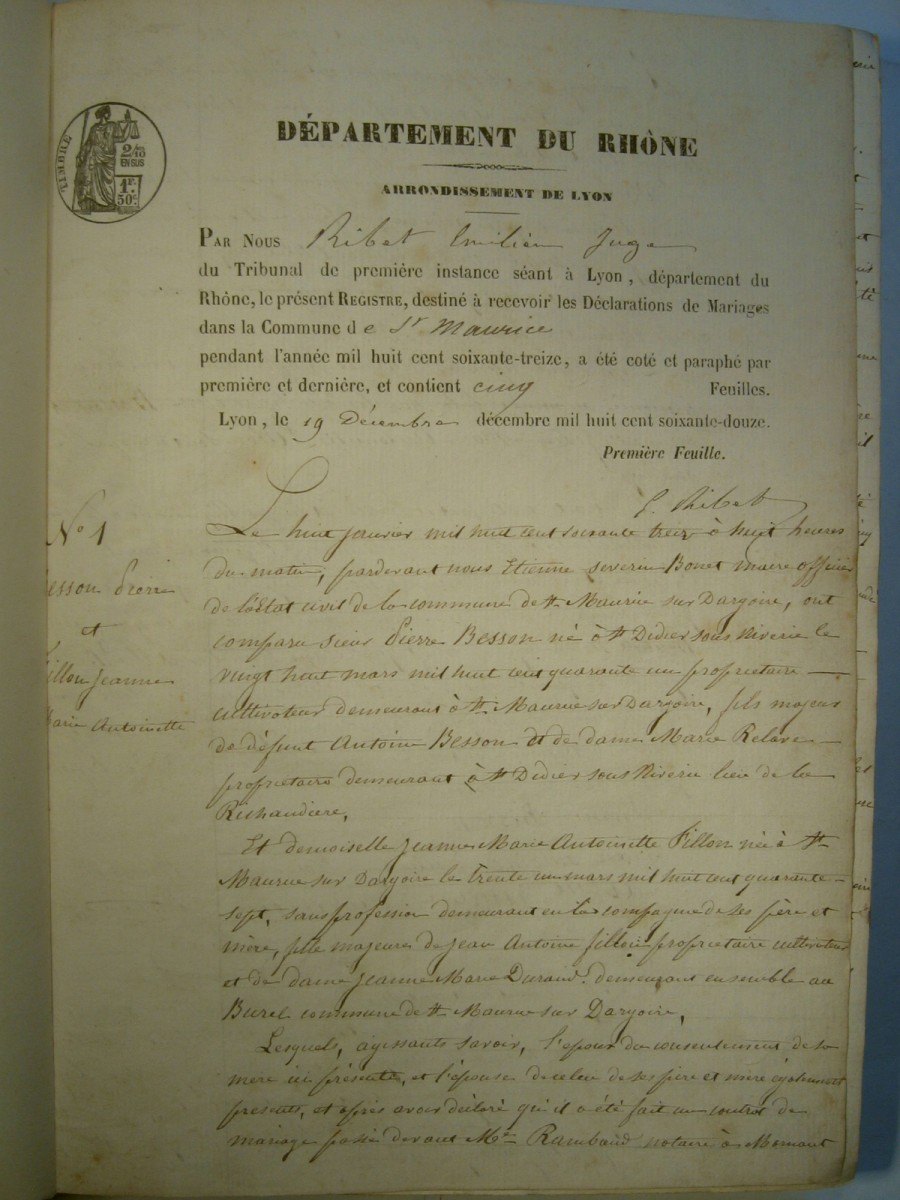 TIMBRE
2/10
EN SUS
1F.
50c.
DÉPARTEMENT DU RHÔNE
ARRONDISSEMENT DE LYON
PAR NOUS Ribet Emilien Juge
du Tribunal de première instance séant à Lyon, département du
Rhône, le présent REGISTRE, destiné à recevoir les Déclarations de Mariages
dans la Commune de St Maurice
pendant l'année mil huit cent soixante-treize, a été coté et paraphé par
première et dernière, et contient cinq Feuilles.
Lyon, le 19 Décembre décembre mil huit cent soixante-douze.
Première Feuille.
E. Ribet
No 1
Besson Pierre
et
Fillon Jeanne
Marie Antoinette
Le huit janvier mil huit cent soixante treize à huit heures
du matin, pardevant nous Etienne severin Bonet maire officier
de l'Etat civil de la commune de St Maurice sur Dargoire, ont
comparu sieur Pierre Besson né à St Didier sous Riverie le
vingt huit mars mil huit cent quarante un proprietaire
cultivateur demeurant à St Maurice sur Dargoire, fils majeur
de défunt Antoine Besson et de dame Marie Relave
propriétaire demeurant à St Didier sous Riverie lieu de la
Richaudiere,
Et demoiselle Jeanne Marie Antoinette Fillon née à St
Maurice sur Dargoire le trente un mars mil huit cent quarante
sept, sans profession demeurant en la compagnie de ses père et
mère, fille majeure de Jean Antoine fillon proprietaire cultivateur
et de dame Jeanne Marie Durand demeurant ensemble au
Burel commune de St Maurice sur Dargoire,
Lesquels, agissants savoir, l'epoux du consentement de sa
mere ici présente, et l'épouse de celui de ses père et mère également
presents, et après avoir déclaré qu'il a été fait un contrat de
mariage passé devant Me Rambaud notaire à Mornant